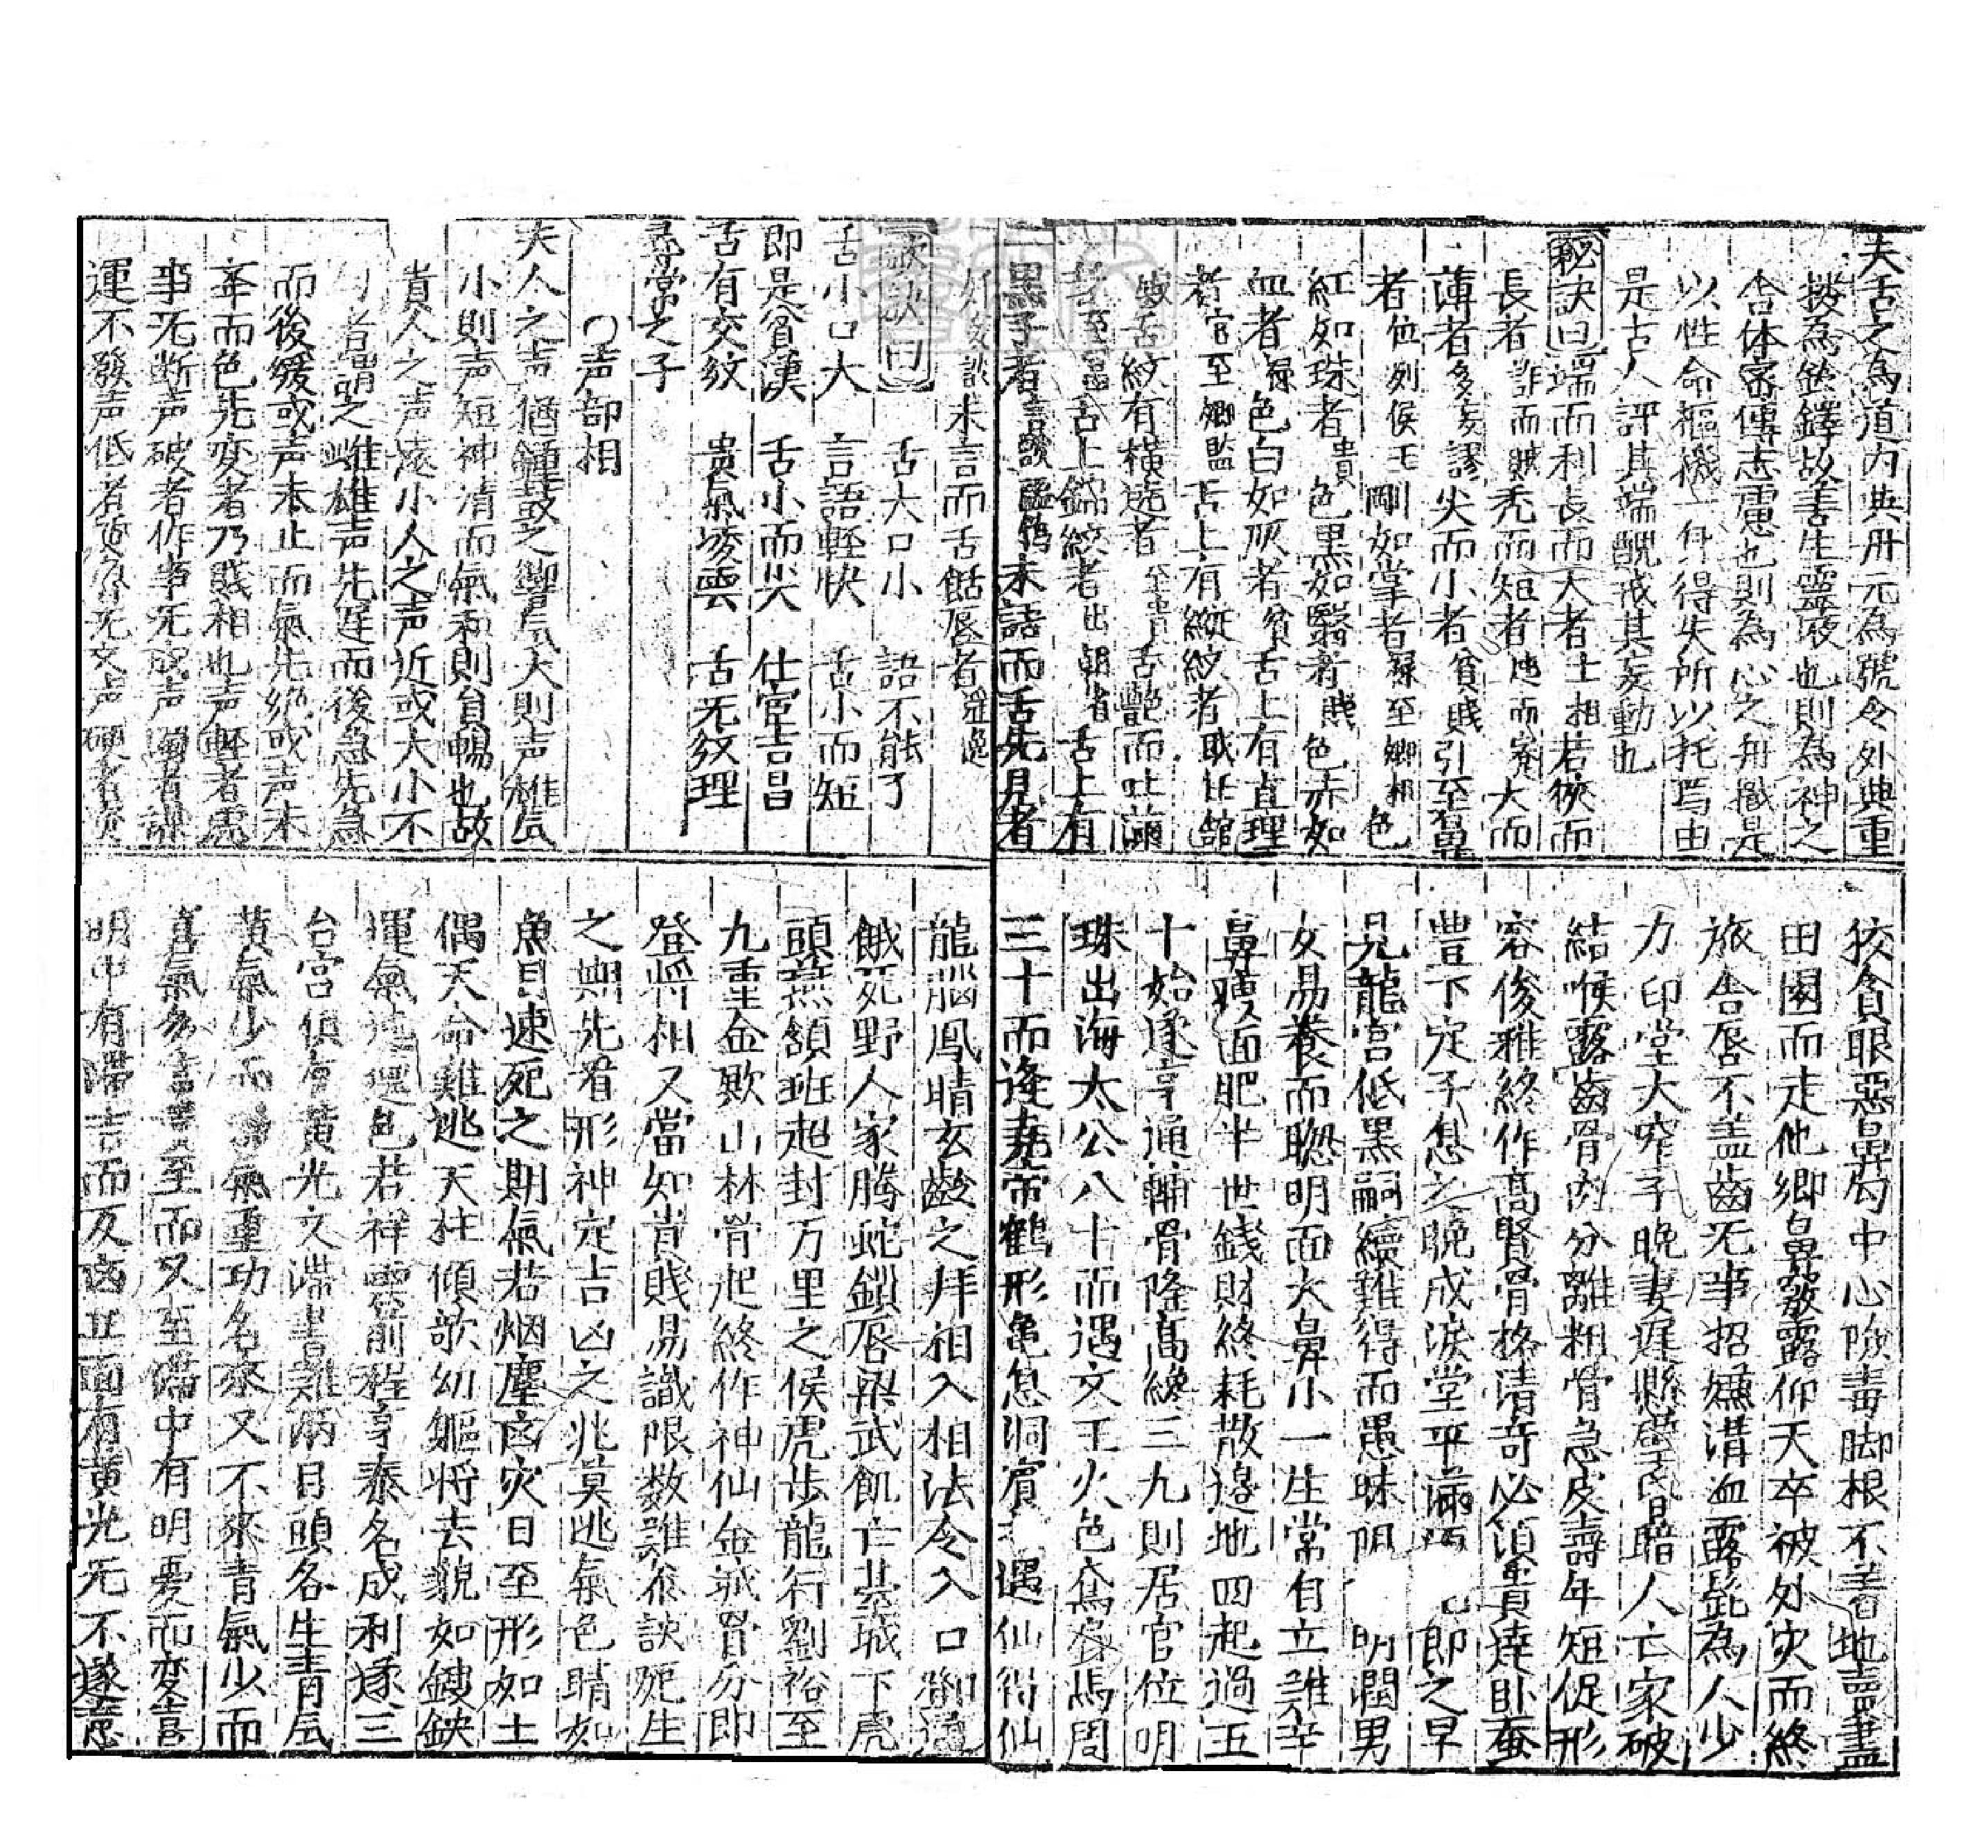 夫舌之為道內與丹元為號令外與重
機為鈴鐸故善生靈液也則為神之
舍体密傳志慮也則為心之舟檝是
以性命樞機一身得失所以托焉由
是古人評其端醜戒其妄動也
秘訣曰端而利長而大者上相若狹而
長者詐而賊禿而短者迍而蹇大而
薄者多妄謬尖而小者貧賤引至鼻
者位列侯王剛如掌者祿至卿相色
紅如珠者貴色黑如翳者賤色赤如
血者祿色白如灰者貧舌上有直理
者官至卿監舌上有縱紋者職任館
殿舌紋有橫遶者至貴舌艷而吐滿
者至富舌上錦紋者出朝省舌上有
黑子者言談虛偽未語而舌先見者
好妄談未言而舌餂唇者淫逸
歌訣曰 舌大口小 語不能了
舌小口大 言語軽快 舌小而短
即是貧漢 舌小而尖 仕宦吉昌
舌有交紋 貴氣凌雲 舌无紋理
尋常之子
○声部相
夫人之声猶鍾鼓之響氣大則声雄氣
小則声短神清而氣和則負暢也故
貴人之声遠小人之声近或大小不
勻者謂之雌雄声先遲而後急先急
而後緩或声未止而氣先絕或声未
莘而色先变者乃賤相也声軽者虛
事无断声破者作事无成声濁者謀
運不發声低者
狡貪眼惡鼻勾中心險毒脚根不着地賣盡
田園而走他鄉鼻竅露仰天卒被外灾而終
旅舍唇不盖齒无事招嫌溝洫露髭為人少
力印堂大窄子晚妻遲懸壁昏暗人亡家破
結喉露齒骨肉分離粗骨急皮壽年短促形
容俊雅終作高賢骨格清奇必須貴達卧蚕
豊下定子息之晚成淚堂平滿 即之早
見龍宮低黑嗣續難得而愚昧陰 明潤男
女易養而聰明面大鼻小一生常自立難辛
鼻聳面肥半世錢財終耗散邊地四起過五
十始遂亨通輔骨隆高終三九則居官位明
珠出海太公八十而遇文王火色鳶肩馬周
三十而逢唐帝鶴形龜息洞賓 遇仙得仙
龍腦鳳睛玄齡之拜相入相法令入口鄧通
餓死野人家騰蛇鎖唇梁武飢亡基城下虎
頭燕頷班超封万里之侯虎步龍行劉裕至
九重金歟山林骨起終作神仙金城骨分即
登将相又當如貴賤易識限数難 訣死生
之期先看形神定吉凶之兆莫逃氣色睛如
魚目速死之期氣若烟塵 灾日至形如土
偶天命難逃天柱傾欹幻軀将去貌如 鉄
運氣 色若祥雲前程亨泰名成利遂三
台宮傎有黄光文 書 難 兩目頭各生青氣
黄氣少而 氣重功名來又不來青氣少而
喜氣多吉 至而又至滯中有明憂而变喜
明中有滯吉而反凶正面有黄光无不遂意